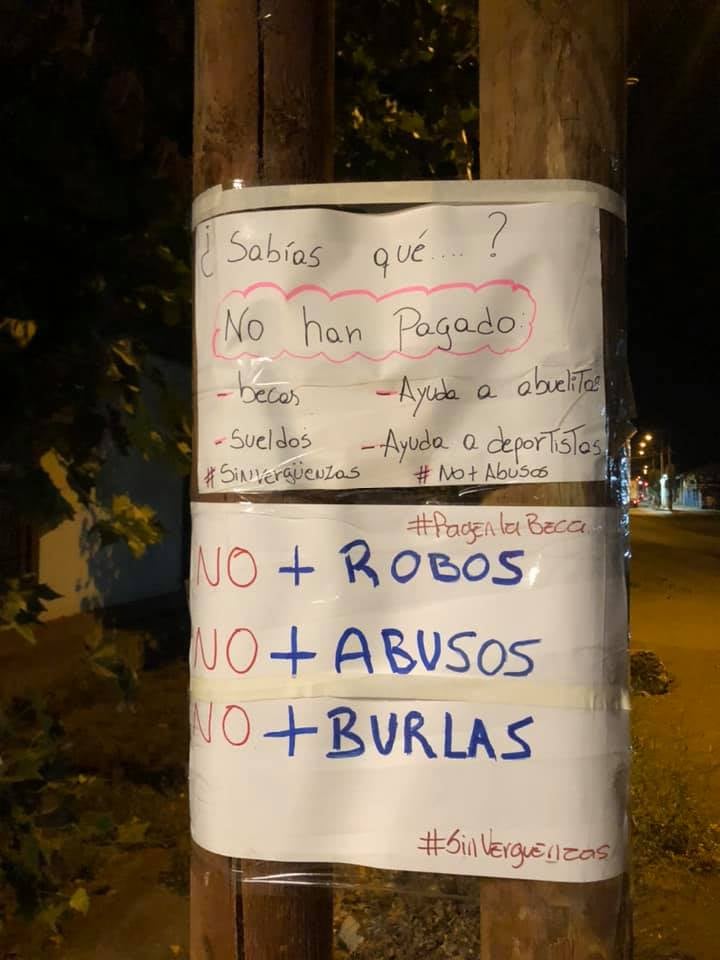 ¿Sabías qué....?
No han Pagado:
- becas - Ayuda a abuelitos
- Sueldos - Ayuda a deportistas
#Sinvergüenzas # No+Abusos
#PagenlaBeca
NO + ROBOS
NO + ABUSOS
NO + BURLAS
#SinVerguenzas